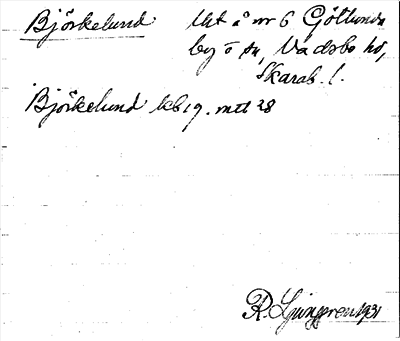 Björkelund lht å nr 6 Götlunda
by o sn, Vadsbo hd,
Skarab. l.
Björkelund kb 19. mtl 28
R. Ljunggren 1931